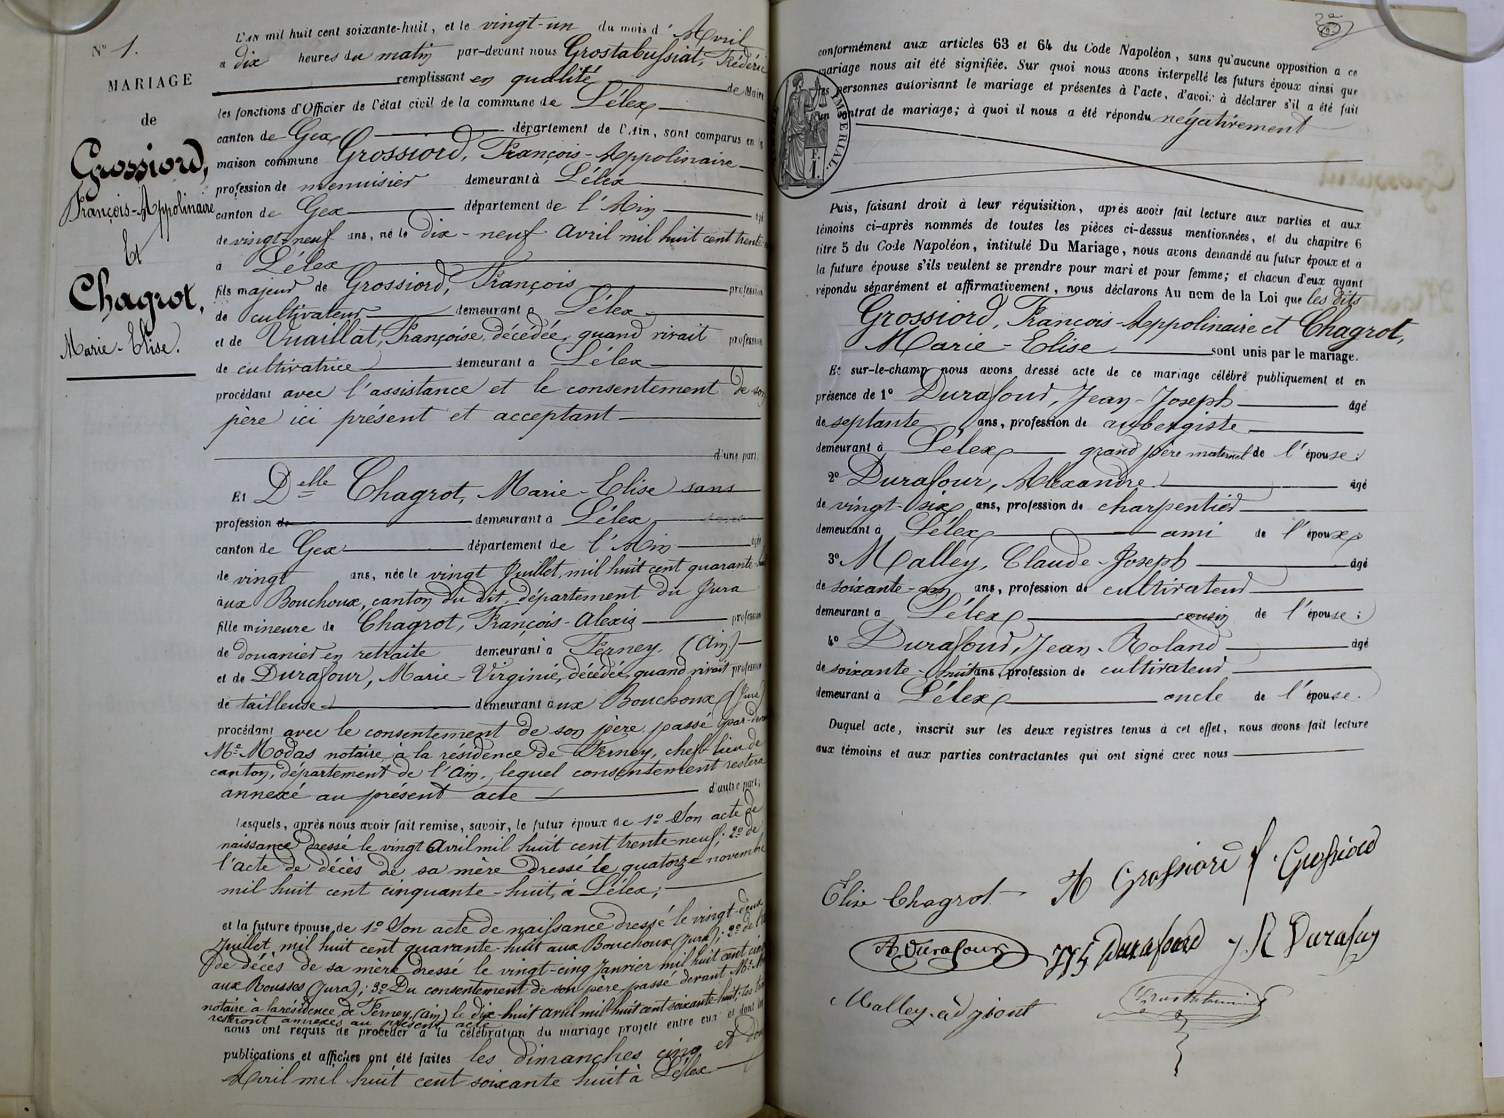 N° 1.
MARIAGE
de
Grossiord,
François-Appolinaire
Et
Chagrot,
Marie-Elise.
L'AN mil huit cent soixante-huit, et le vingt-un du mois d'Avril
à dix heures du matin par-devant nous Grostabussiat, Frédéric
remplissant en qualité de Maire
les fonctions d'Officier de l'état civil de la commune de Lélex
canton de Gex département de l'Ain, sont comparus en la
maison commune Grossiord, François-Appolinaire
profession de menuisier demeurant à Lélex
canton de Gex département de l'Ain âgé
de vingt-neuf ans, né le Dix-neuf Avril mil huit cent trente
à Lélex
fils majeur de Grossiord, François profession
de cultivateur demeurant à Lélex
et de Vuaillat, Françoise, décédée, quand vivait profession
de cultivatrice demeurant à Lélex
procédant avec l'assistance et le consentement de son
père ici présent et acceptant
d'une part;
Et Delle Chagrot, Marie-Elise sans
profession de demeurant à Lélex
canton de Gex département de l'Ain âgée
de vingt ans, née le vingt Juillet, mil huit cent quarante-
aux Bouchoux, canton du dit, département du Jura
fille mineure de Chagrot, François-Alexis profession
de douanier en retraite demeurant à Ferney, (Ain)
et de Durafour, Marie-Virginie, décédée, quand vivait profession
de tailleuse demeurant aux Bouchoux (Jura)
procédant avec le consentement de son père passé par-devant
Me Modas notaire à la résidence de Ferney, chef-lieu de
canton, département de l'Ain, lequel consentement restera
annexé au présent acte d'autre part;
Lesquels, après nous avoir fait remise, savoir, le futur époux de 1° Son acte de
naissance dressé le vingt Avril mil huit cent trente neuf; 2° de
l'acte de décès de sa mère dressé le quatorze novembre
mil huit cent cinquante-huit, à Lélex;
et la future épouse, de 1° Son acte de naissance dressé le vingt-deux
Juillet mil huit cent quarante-huit aux Bouchoux (Jura); 2° de l'
de décès de sa mère dressé le vingt-cinq Janvier mil huit cent
aux Rousses (Jura); 3° Du consentement de son père passé devant Me
notaire à la résidence de Ferney, (Ain) le dix-huit avril mil huit cent soixante huit;
resteront annexés au présent acte
nous ont requis de procéder à la célébration du mariage projeté entre eux et dont les
publications et affiches ont été faites les dimanches cinq et douze
Avril mil huit cent soixante huit à Lélex
conformément aux articles 63 et 64 du Code Napoléon, sans qu'aucune opposition à ce
mariage nous ait été signifiée. Sur quoi nous avons interpellé les futurs époux ainsi que
les personnes autorisant le mariage et présentes à l'acte, d'avoir à déclarer s'il a été fait
un contrat de mariage; à quoi il nous a été répondu négativement
IMPÉRIAL
Puis, faisant droit à leur réquisition, après avoir fait lecture aux parties et aux
témoins ci-après nommés de toutes les pièces ci-dessus mentionnées, et du chapitre 6
titre 5 du Code Napoléon, intitulé Du Mariage, nous avons demandé au futur époux et à
la future épouse s'ils veulent se prendre pour mari et pour femme; et chacun d'eux ayant
répondu séparément et affirmativement, nous déclarons Au nom de la Loi que les dits
Grossiord, François-Appolinaire et Chagrot,
Marie-Elise sont unis par le mariage.
Et sur-le-champ nous avons dressé acte de ce mariage célébré publiquement et en
présence de 1° Durafour, Jean-Joseph âgé
de septante ans, profession de aubergiste
demeurant à Lélex grand père maternel de l'épouse:
2° Durafour, Alexandre âgé
de vingt-six ans, profession de charpentier
demeurant à Lélex ami de l'époux
3° Malley, Claude-Joseph âgé
de soixante- ans, profession de cultivateur
demeurant à Lélex cousin de l'épouse:
4° Durafour, Jean-Roland âgé
de soixante-huit ans, profession de cultivateur
demeurant à Lélex oncle de l'épouse.
Duquel acte, inscrit sur les deux registres tenus à cet effet, nous avons fait lecture
aux témoins et aux parties contractantes qui ont signé avec nous
Elise Chagrot A Grossiord f. Grossiord
A Durafour JJ Durafourd J. R Durafour
Malley adjoint